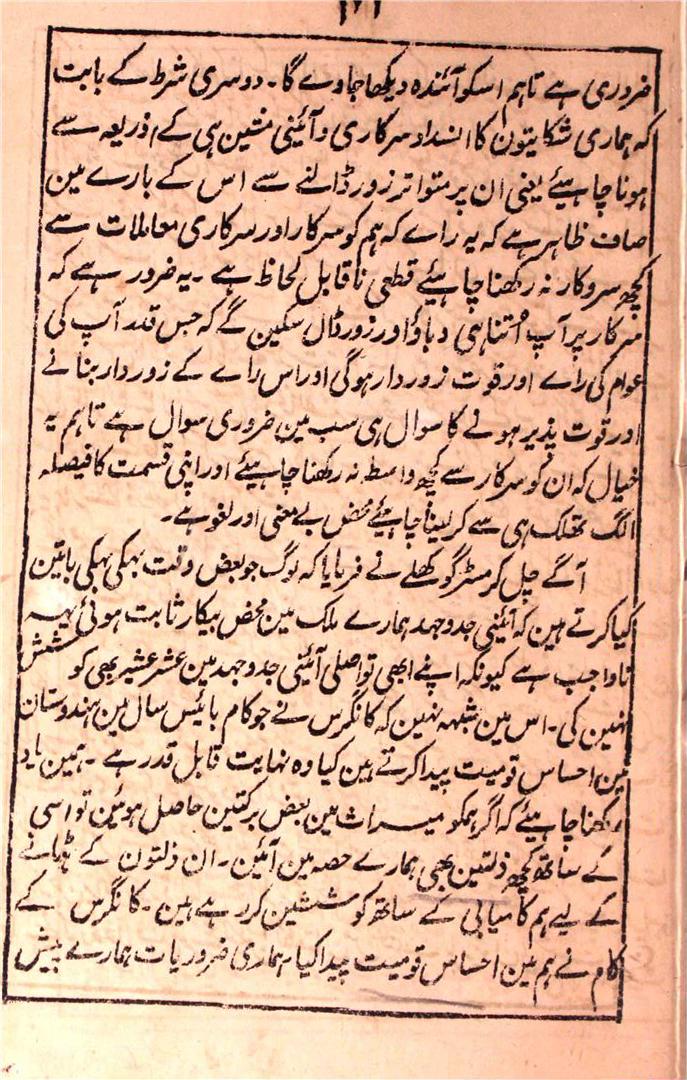 ضروری ہے تاہم اسکو آئندہ دیکھا جاوے گا۔ دوسری شرط کے بابت
کہ ہماری شکایتون کا انسداد سرکاری و آئینی مشین ہی کے ذریعہ سے
ہونا چاہیئے یعنی ان پر متواتر زور ڈالنے سے اس کے بارے مین
صاف ظاہر ہے کہ یہ راے کہ ہم کو سرکار اور سرکاری معاملات سے
کچھ سروکار نہ رکھنا چاہیئے قطعی ناقابل لحاظ ہے۔ یہ ضرور ہے کہ
سرکار پر آپ اُتنا ہی دباؤ اور زور ڈال سکین گے کہ جس قدر آپ کی
عوام کی راے اور قوت زوردار ہوگی اور اس راے کے زوردار بنانے
اور قوت پذیر ہونے کا سوال ہی سب مین ضروری سوال ہے تاہم یہ
خیال کہ ان کو سرکار سے کچھ واسطہ نہ رکھنا چاہیئے اور اپنی قسمت کا فیصلہ
الگ تھلک ہی سے کر لینا چاہیئے محض بے معنی اور لغو ہے۔
آگے چل کر مسٹر گوکھلے نے فرمایا کہ لوگ جو بعض وقت بہکی بہکی باتین
کیا کرتے ہین کہ آئینی جدوجہد ہمارے ملک مین محض بیکار ثابت ہوئی یہہ
ناواجب ہے کیونکہ اپنے ابھی تو اصلی آئینی جدوجہد مین عشر عشیر بھی کوشش
نہین کی۔ اس مین شبہہ نہین کہ کانگرس نے جو کام بائیس سال مین ہندوستان
مین احساس قومیت پیدا کرتے ہین کیا وہ نہایت قابل قدر ہے۔ ہمین یاد
رکھنا چاہیئے کہ اگر ہمکو میراث مین بعض برکتین حاصل ہوئین تو اسی
کے ساتھ کچھ ذلتین بھی ہمارے حصہ مین آئین۔ ان ذلتون کے ہٹانے
کے لیے ہم کامیابی کے ساتھ کوششین کر رہے ہین۔ کانگرس کے
کام نے ہم مین احساس قومیت پیدا کیا۔ ہماری ضروریات ہمارے پیش